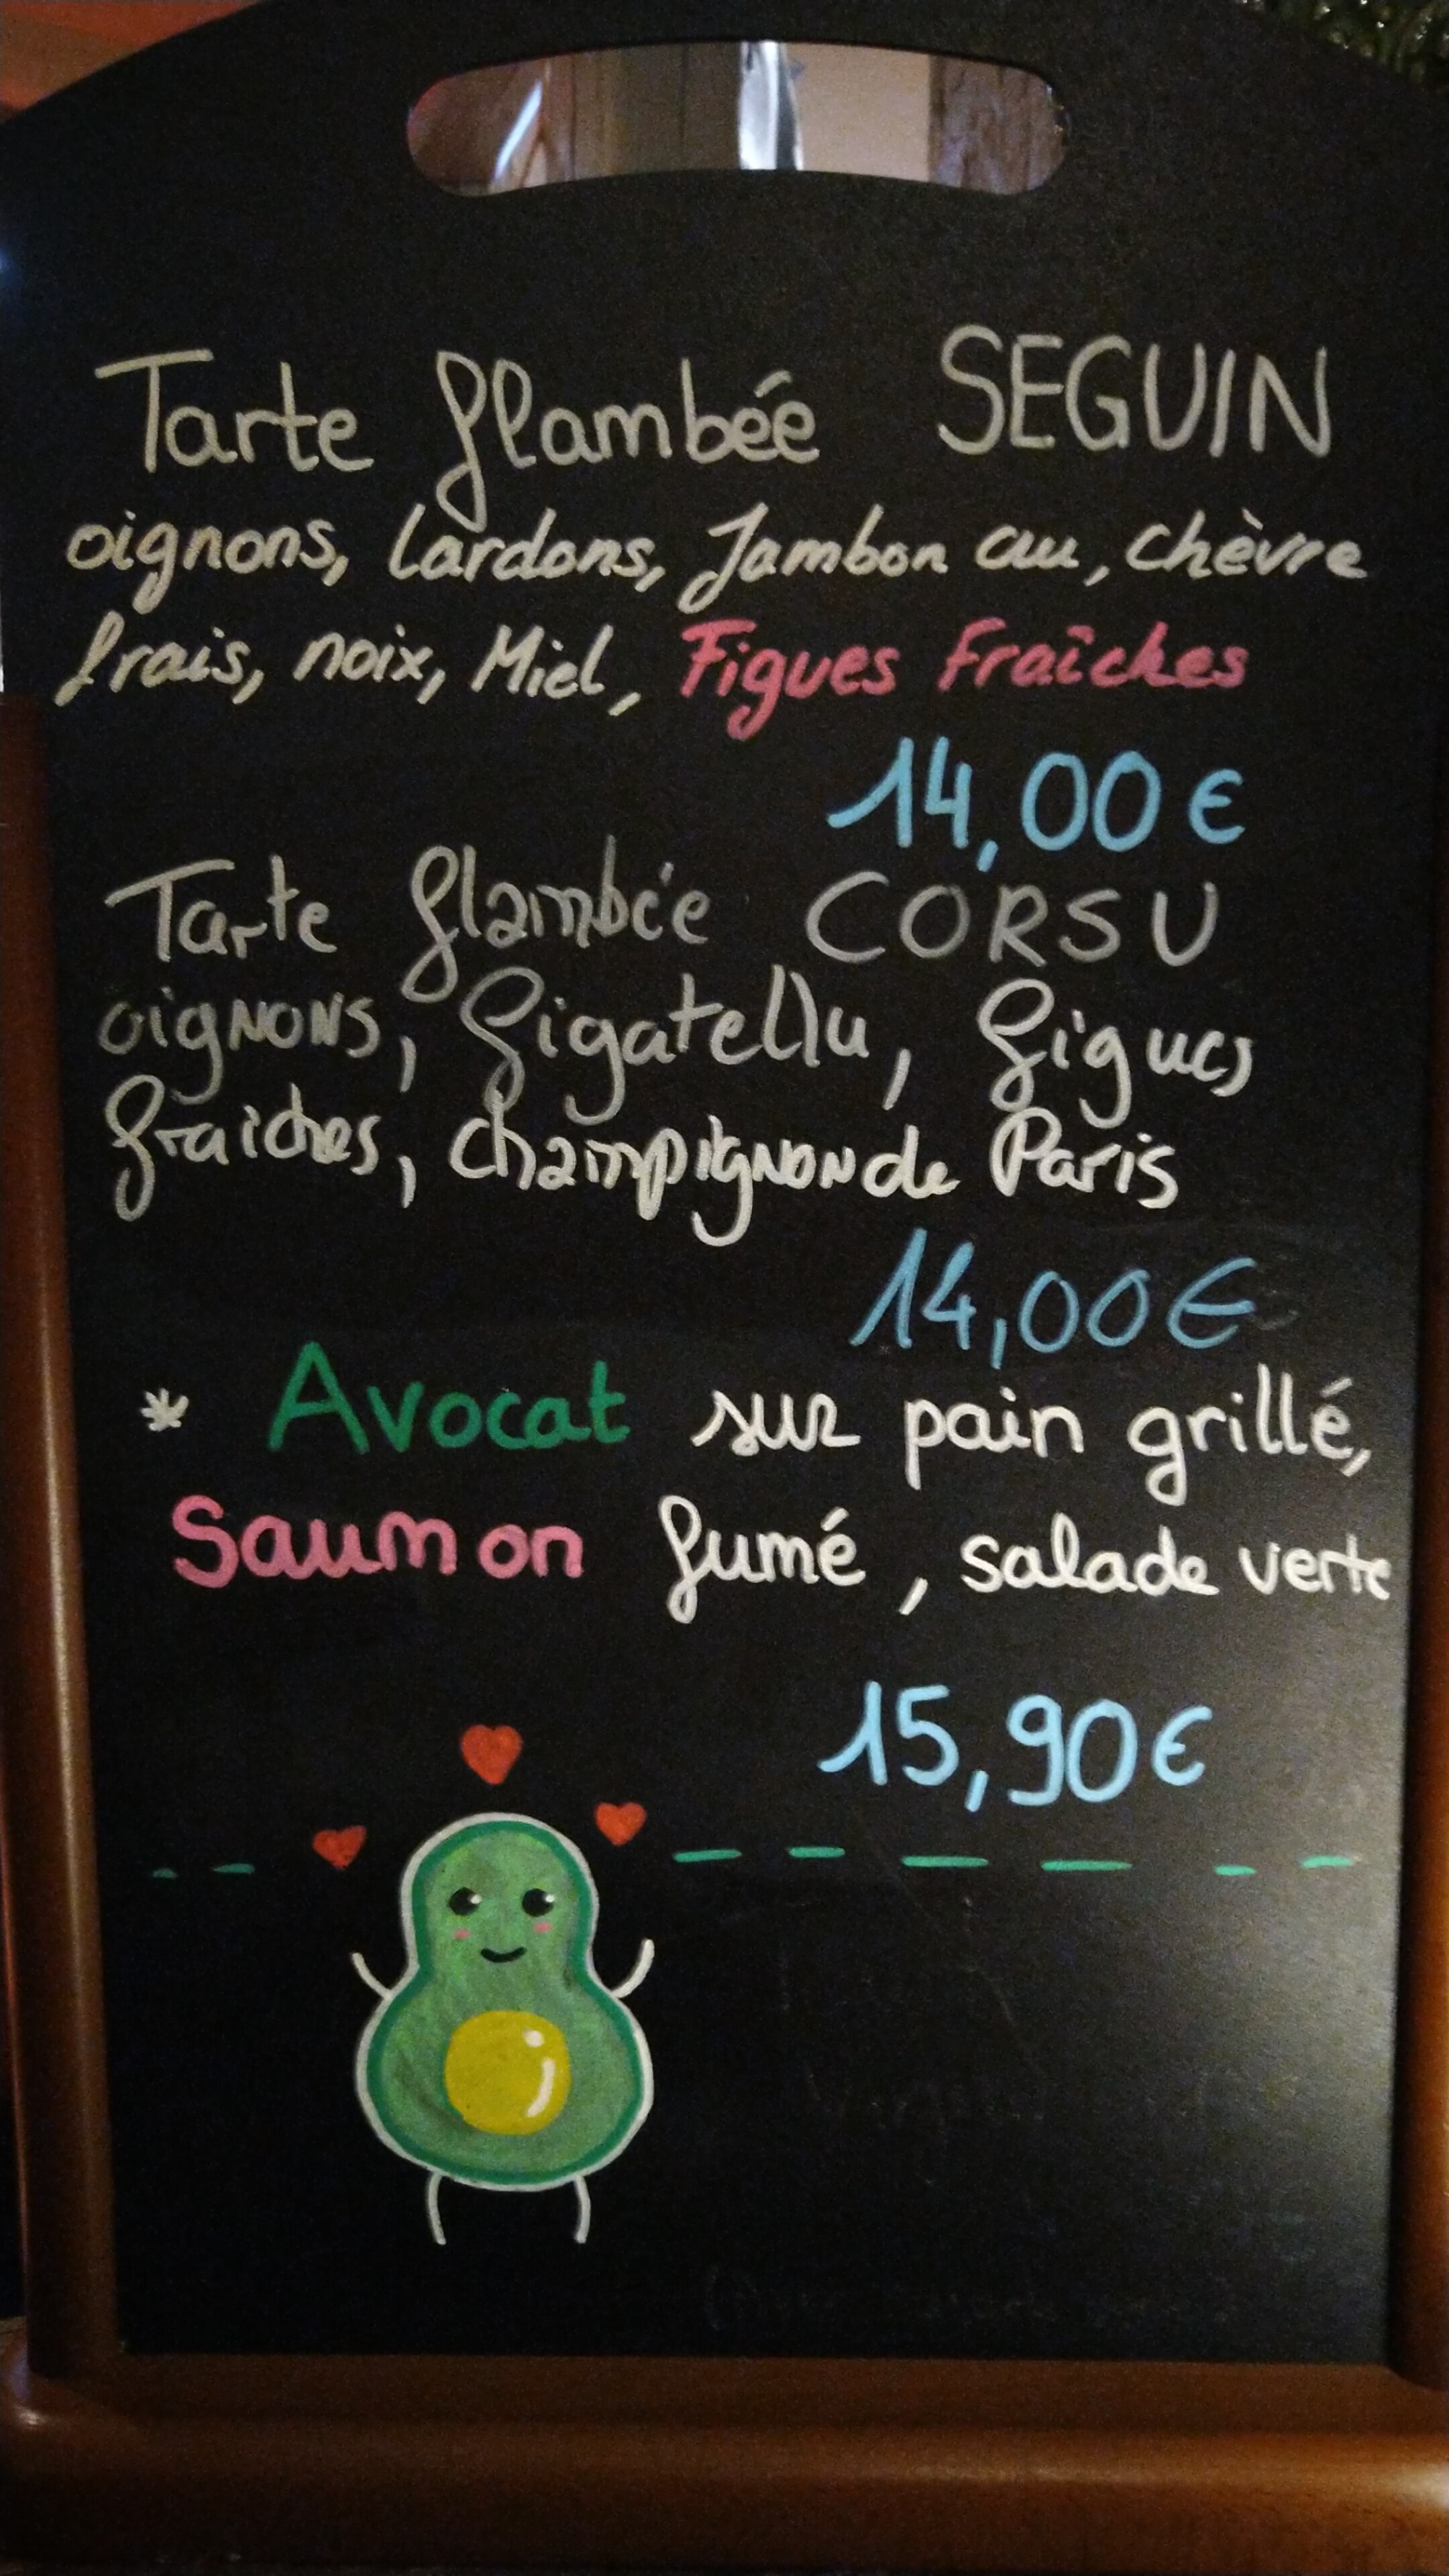 Tarte flambée SEGUIN
oignons, Lardons, Jambon cru, chèvre
frais, noix, Miel, Figues Fraîches
14,00€
Tarte flambée CORSU
oignons, figatellu, figues
fraiches, champignon de Paris
14,00€
* Avocat sur pain grillé,
Saumon fumé, salade verte
15,90€